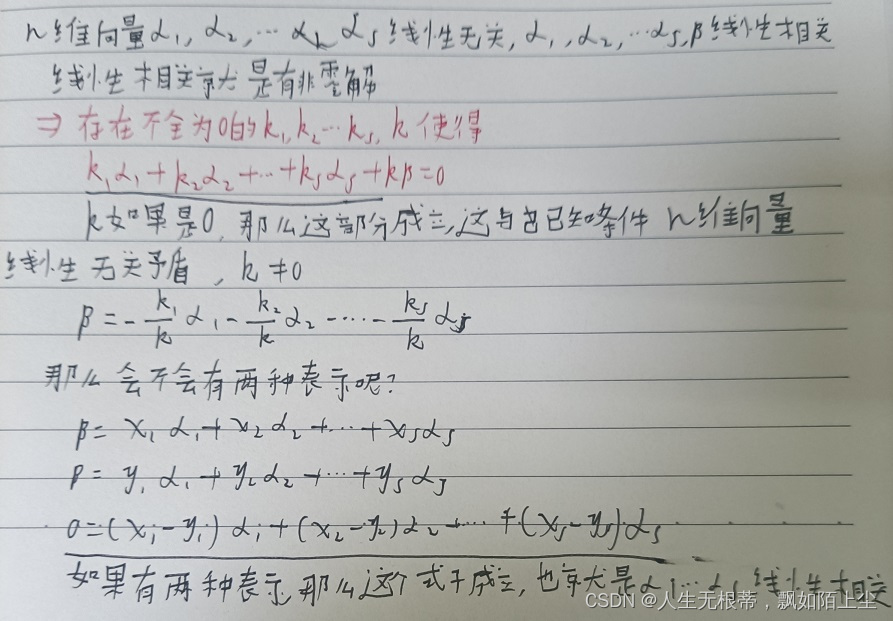 n维向量α₁, α₂, … αₛ线性无关, α₁, α₂, … αₛ, β线性相关
线性相关就是有非零解
⇒ 存在不全为0的k₁, k₂ … kₛ, k 使得
k₁α₁ + k₂α₂ + … + kₛαₛ + kβ = 0
k如果是0, 那么这部分成立, 这与已知条件 n维向量
线性无关矛盾, k ≠ 0
β = - k₁/k α₁ - k₂/k α₂ - … - kₛ/k αₛ
那么会不会有两种表示呢?
β = x₁α₁ + x₂α₂ + … + xₛαₛ
β = y₁α₁ + y₂α₂ + … + yₛαₛ
0 = (x₁-y₁)α₁ + (x₂-y₂)α₂ + … + (xₛ-yₛ)αₛ
如果有两种表示, 那么这个式子成立, 也就是α₁ … αₛ线性相关
CSDN @人生无根蒂，飘如陌上尘